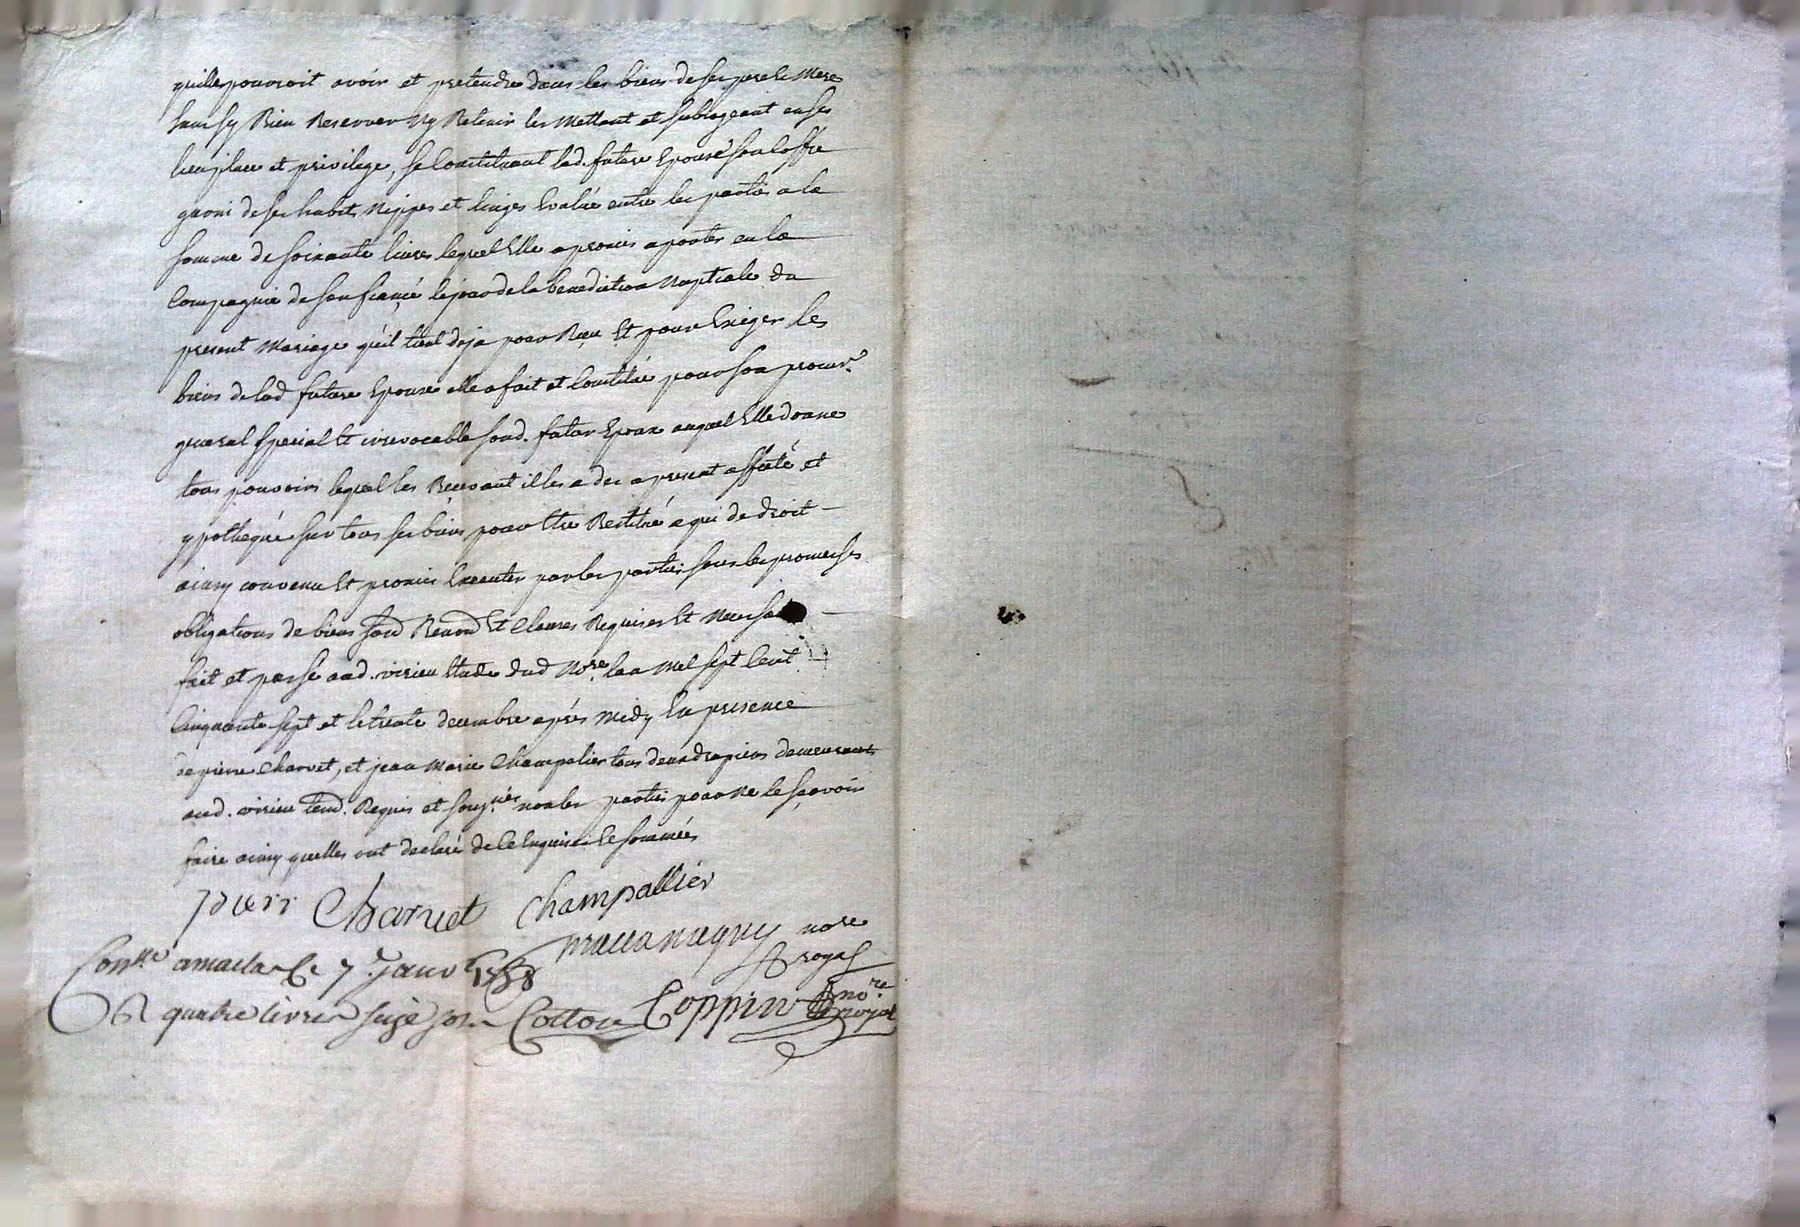 quelle pouvroit avoir et pretendre dans les biens de ses pere et Mere
sans sy Rien Reserver Ny Retenir les Mettant et subrogeant en ses
lieu place et privilege, se Constituant lad. future Epouse son coffre
garni de ses habits Nippes et linges Evalué entre les parties a la
somme de soixante livres lequel Elle a promis aporter en la
Compagnie de son fiancé le jour de la benediction Nuptiale du
present Mariage qu'il tient deja pour Reçu Et pour Exiger les
biens de lad future Epouse elle a fait et Constitué pour son procur.r
general special Et irrevocable sond. futur Epoux auquel Elle donne
tous pouvoirs lequel les Recevant il les a des a present affecté et
ypothequé sur tous ses biens pour Etre Restitué a qui de droit
ainsy convenu Et promis Executer par les parties sous les promesses
obligations de biens soud Renond Et Clauses Requises Et
fait et passé aud. virieu Etude dud No.re lan Mil sept Cent
Cinquante sept et le trente decembre après Midy En presence
de pierre Charvet, et jean Marie Champalier tous deux drapiers demeurants
aud. virieu tem. Requis et sousig.nés non les parties pour Ne le sçavoir
faire ainsy quelles ont declaré de ce Enquises et sommées
Charvet Champallier
no.re
royal
Con.lle a le 7 Janv. 1758
R quatre livres seize sols Cotton Coppin no.re
royal